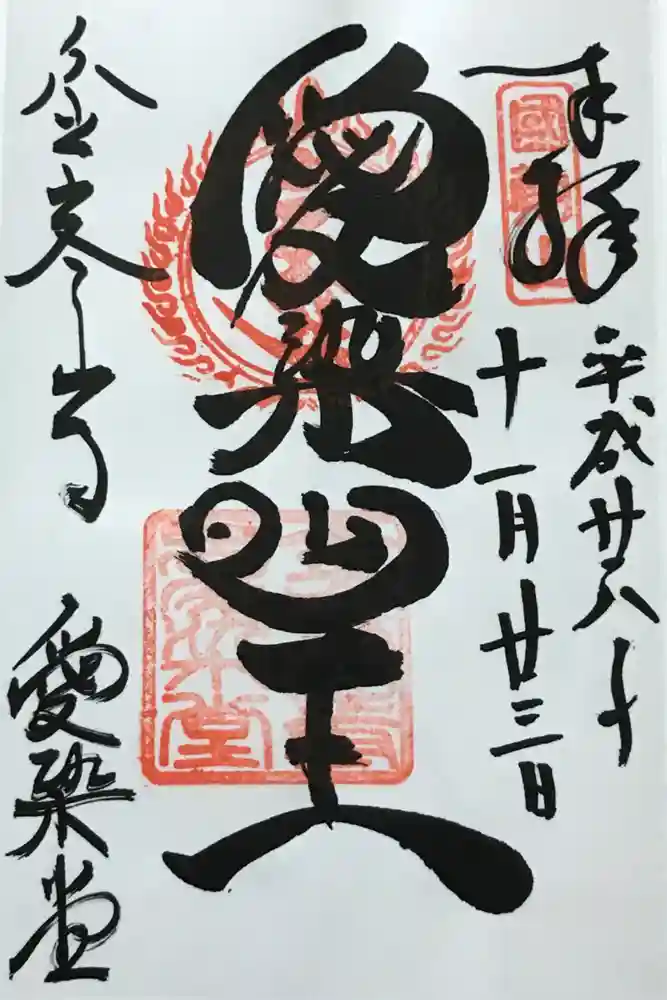 奉拝
國軸山
平成廿八年
十一月廿三日
愛染明王
金峯山寺
愛染堂